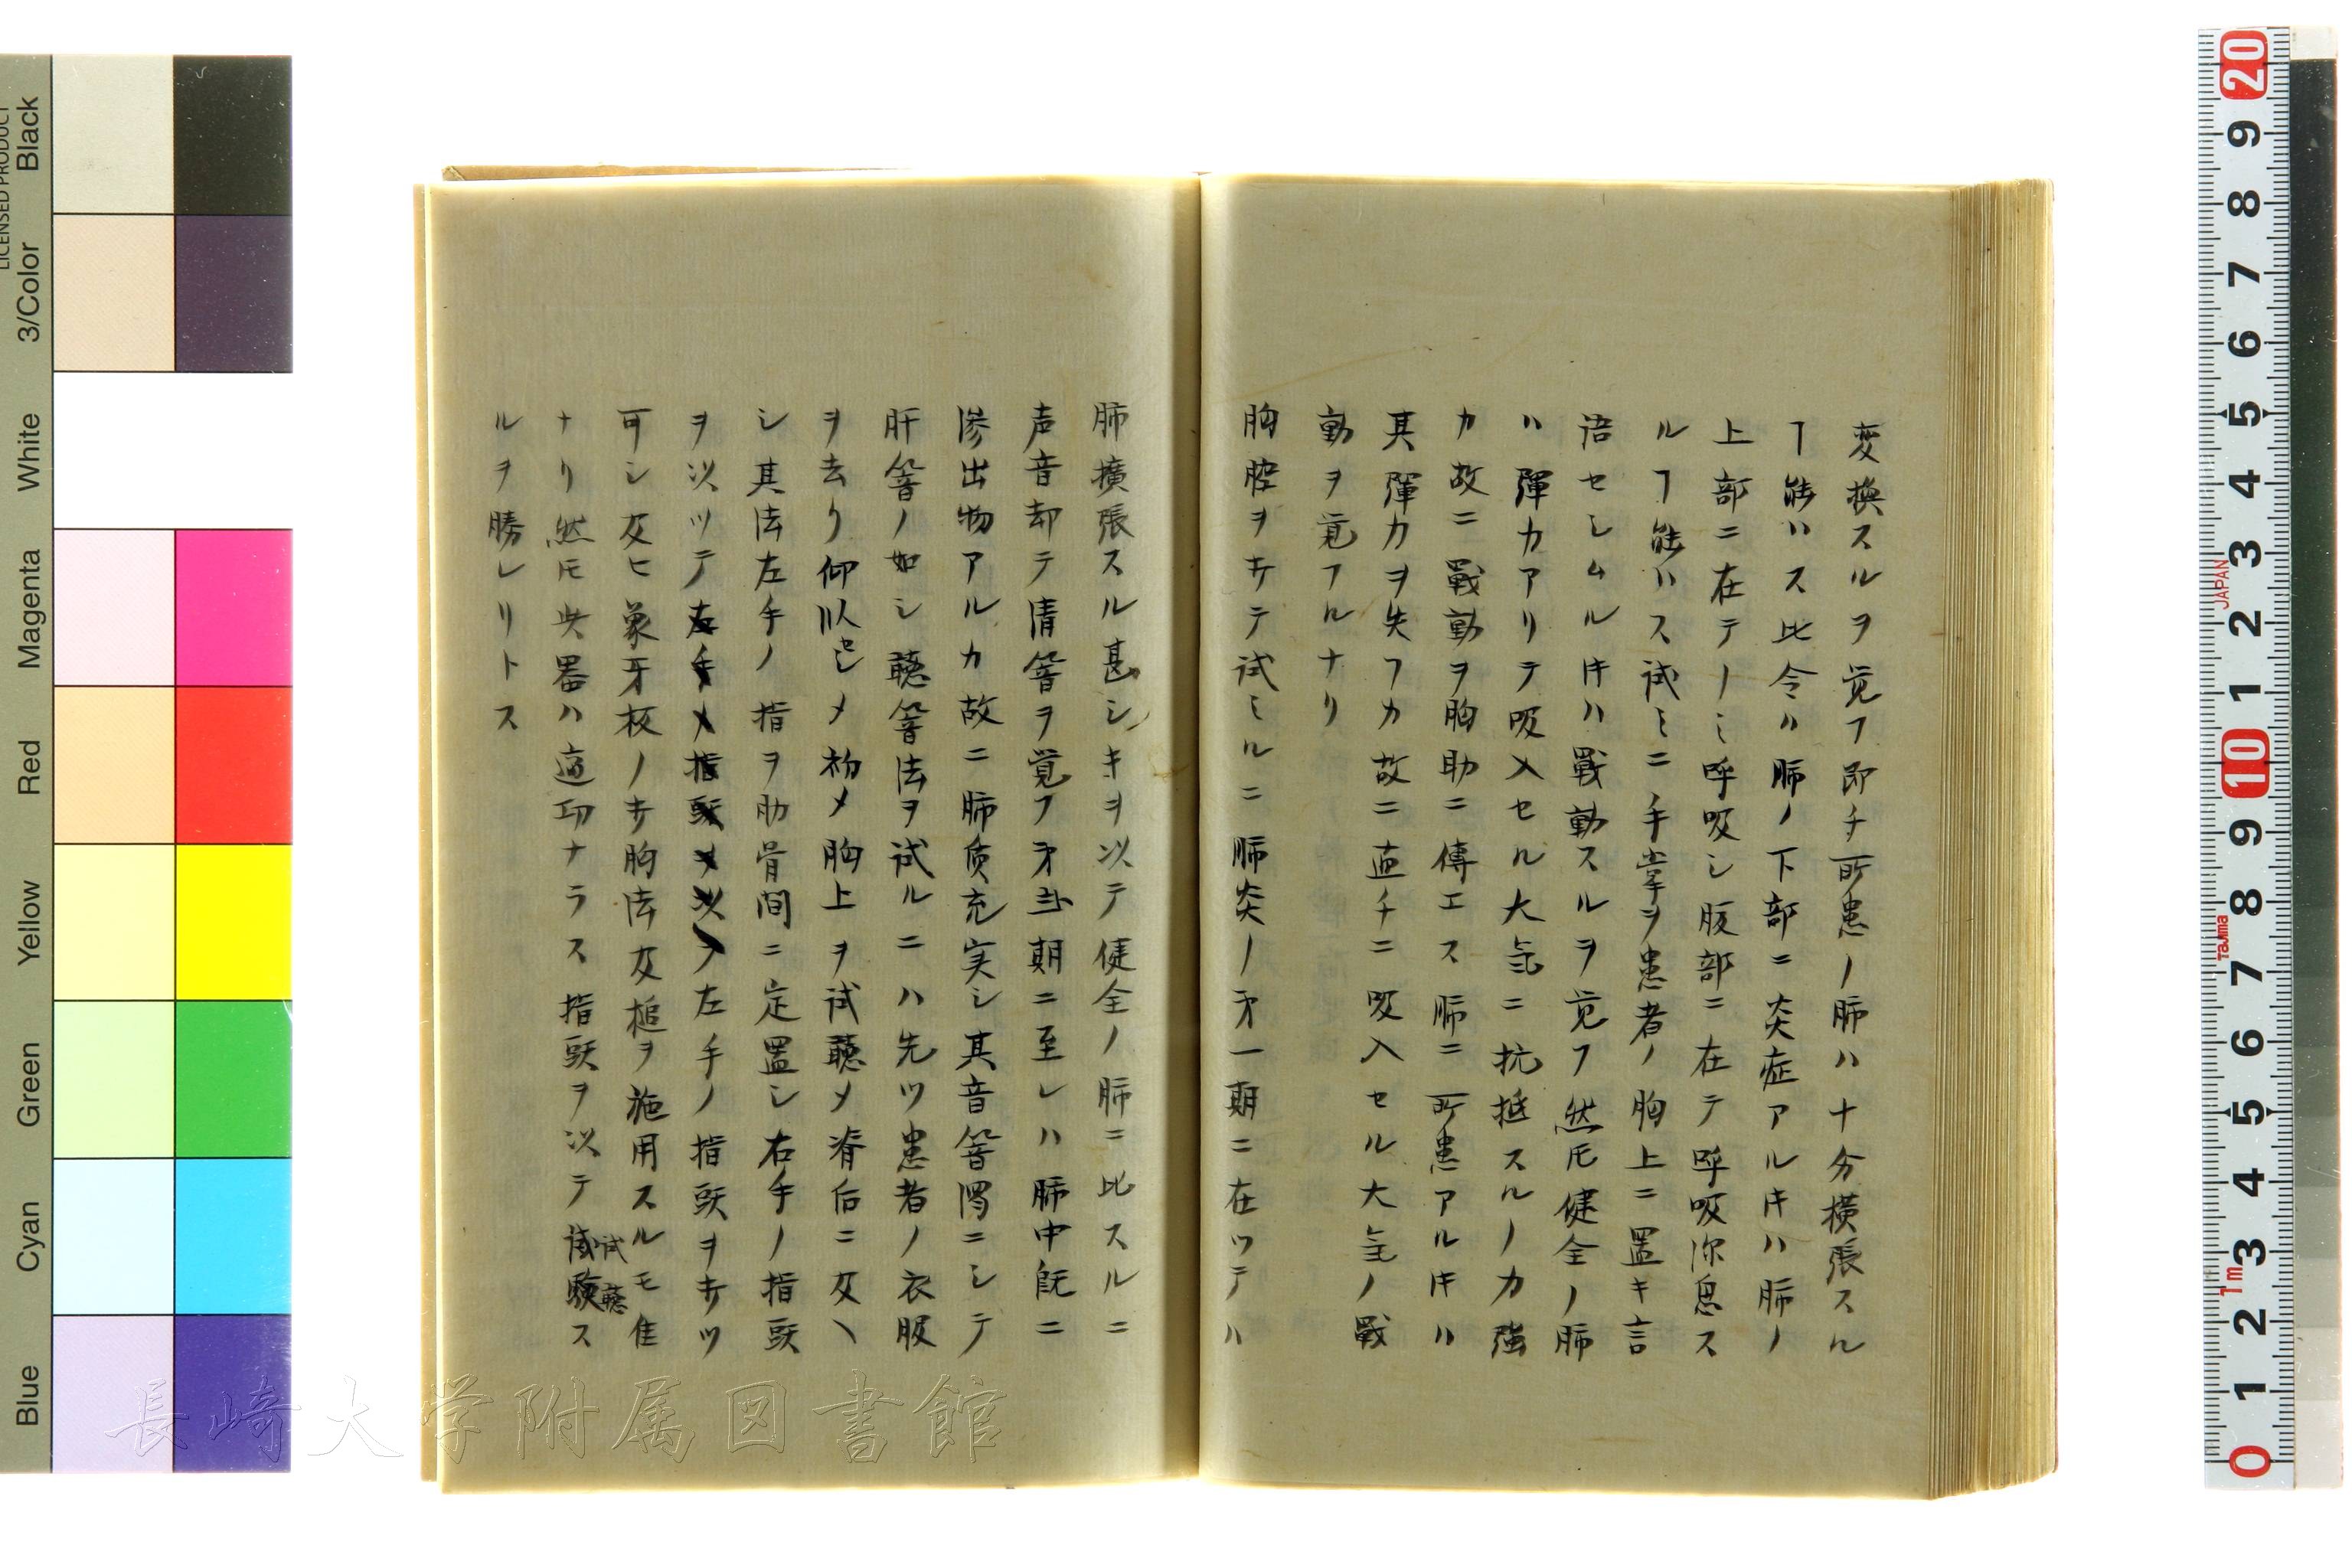 変換スルヲ覚フ即チ所患ノ肺ハ十分横張スル
ヿ能ハス比令ハ肺ノ下部ニ炎症アルキハ肺ノ
上部ニ在テノミ呼吸シ腹部ニ在テ呼吸深息ス
ルヿ能ハス試ミニ手掌ヲ患者ノ胸上ニ置キ言
語セシムルキハ戰動スルヲ覚フ然𪜈健全ノ肺
ハ彈力アリテ吸入セル大気ニ抗抵スルノ力強
カ故ニ戰動ヲ胸肋ニ傳エス肺ニ所患アルキハ
其彈力ヲ失フカ故ニ直チニ吸入セル大気ノ戰
動ヲ覚フルナリ
胸腔ヲ打テ試ミルニ肺炎ノ㐧一期ニ在ツテハ
肺擴張スル甚シキヲ以テ健全ノ肺ニ比スルニ
声音却テ清響ヲ覚フ㐧弐期ニ至レハ肺中既ニ
滲出物アルカ故ニ肺质充実シ其音響濁ニシテ
肝響ノ如シ聽響法ヲ試ルニハ先ツ患者ノ衣服
ヲ去リ仰臥セシメ初メ胸上ヲ試聽メ脊后ニ及ヘ
シ其法左手ノ指ヲ肋骨間ニ定置シ右手ノ指頭
ヲ以ツテ左手ノ指頭ヲ打ツ
可シ及ヒ象牙板ノ打胸法及槌ヲ施用スルモ佳
ナリ然𪜈此器ハ適切ナラス指頭ヲ以テ試聽ス
ルヲ勝レリトス
長崎大学附属図書館
Black
3/Color
White
Magenta
Red
Yellow
Green
Cyan
Blue
LICENSED PRODUCT
20
9
8
7
6
5
4
3
2
1
10
9
8
7
6
5
4
3
2
1
0
JAPAN
Tajima
1m